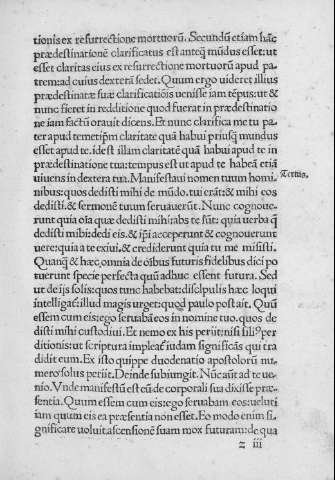 tionis ex resurrectione mortuorũ. Secundũ etiam hãc
prædestinationẽ clarificatus est anteq̃ mũdus esset: ut
esset claritas eius ex resurrectione mortuorũ apud pa
trem: ad cuius dexterã sedet. Quum ergo uideret illius
prædestinatæ suæ clarificatiõis uenisse iam tẽpus: ut &
nunc fieret in redditione quod fuerat in prædestinatio
ne iam factũ orauit dicens. Et nunc clarifica me tu pa
ter apud temetip̃m claritate quã habui priusq̃ mundus
esset apud te. id est illam claritatẽ quã habui apud te in
prædestinatione tua: tempus est ut apud te habeã etiã
uiuens in dextera tua. Manifestaui nomen tuum homi
nibus: quos dedisti mihi de mũdo. tui erãt: & mihi eos
dedisti. & sermonẽ tuum seruauerũt. Nunc cognoue-
runt quia oĩa quæ dedisti mihi: abs te sũt: quia uerba q̃
dedisti mihi: dedi eis. & ip̃i acceperunt & cognouerunt
uere: quia a te exiui. & crediderunt quia tu me misisti.
Quanq̃ & hæc, omnia de oĩbus futuris fidelibus dici po
tuerunt specie perfecta quũ adhuc essent futura. Sed
ut de ijs solis: quos tunc habebat: discipulis hæc loqui
intelligat̃: illud magis urget: quod paulo post ait. Quũ
essem cum eis: ego seruabã eos in nomine tuo. quos de
disti mihi custodiui. Et nemo ex his periit: nisi filiꝰ per
ditionis: ut scriptura impleat̃: iudam significãs qui tra
didit eum. Ex isto quippe duodenatio apostolorũ nu
mero: solus periit. Deinde subiungit. Nũc aũt ad te ue-
nio. Vnde manifestũ est eũ de corporali sua dixisse præ
sentia. Quum essem cum eis: ego seruabam eos: ueluti
iam quum eis ea præsentia non esset. Eo modo enim si-
gnificare uoluit ascensionẽ suam mox futuram: de qua
z iii
Tertiio.